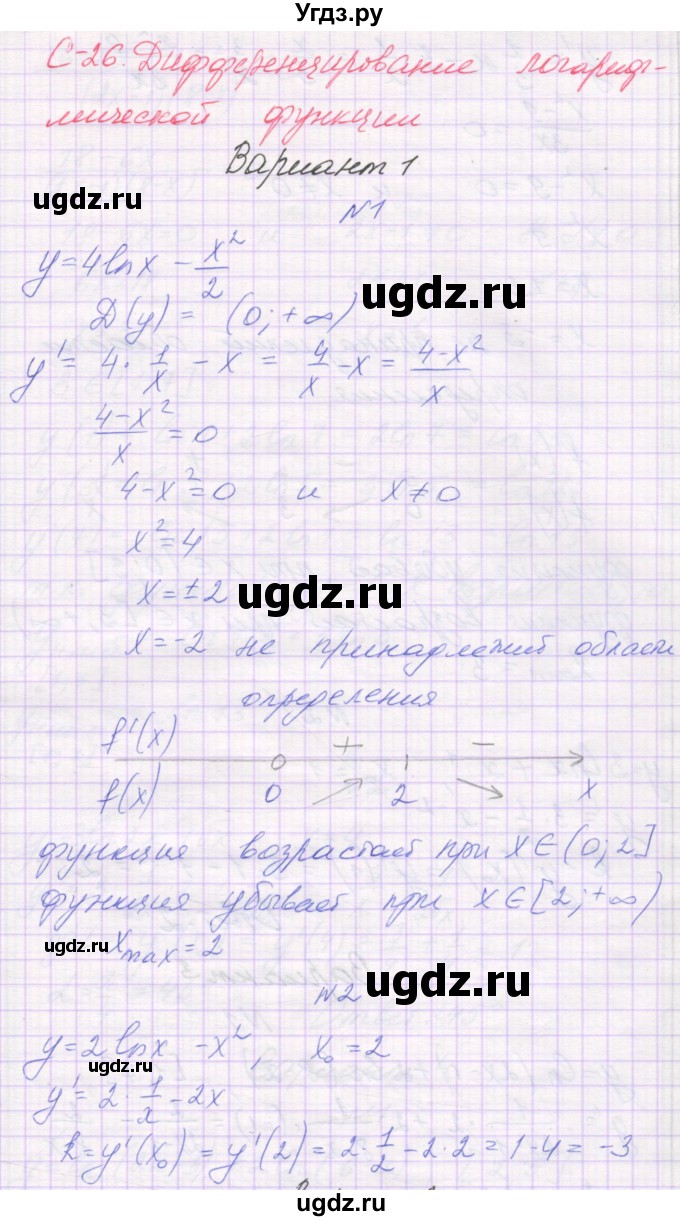 Угдз.ру
С-26. Дифференцирование логариф-
мической функции
Вариант 1
ugdz.ru
№1
y = 4 ln x - x²/2
ugdz.ru
D(y) = (0; +∞)
y' = 4 · 1/x - x = 4/x - x = (4-x²)/x
(4-x²)/x = 0
4-x² = 0 и x ≠ 0
x² = 4
x = ±2
ugdz.ru
x = -2 не принадлежит области
определения
f'(x) + -
f(x) 0 2 x
функция возрастает при x ∈ (0; 2]
функция убывает при x ∈ [2; +∞)
ugdz.ru
x max = 2
№2
ugdz.ru
y = 2 ln x - x², x₀ = 2
ugdz.ru
y' = 2 · 1/x - 2x
k = y'(x₀) = y'(2) = 2 · 1/2 - 2·2 = 1-4 = -3
ugdz.ru